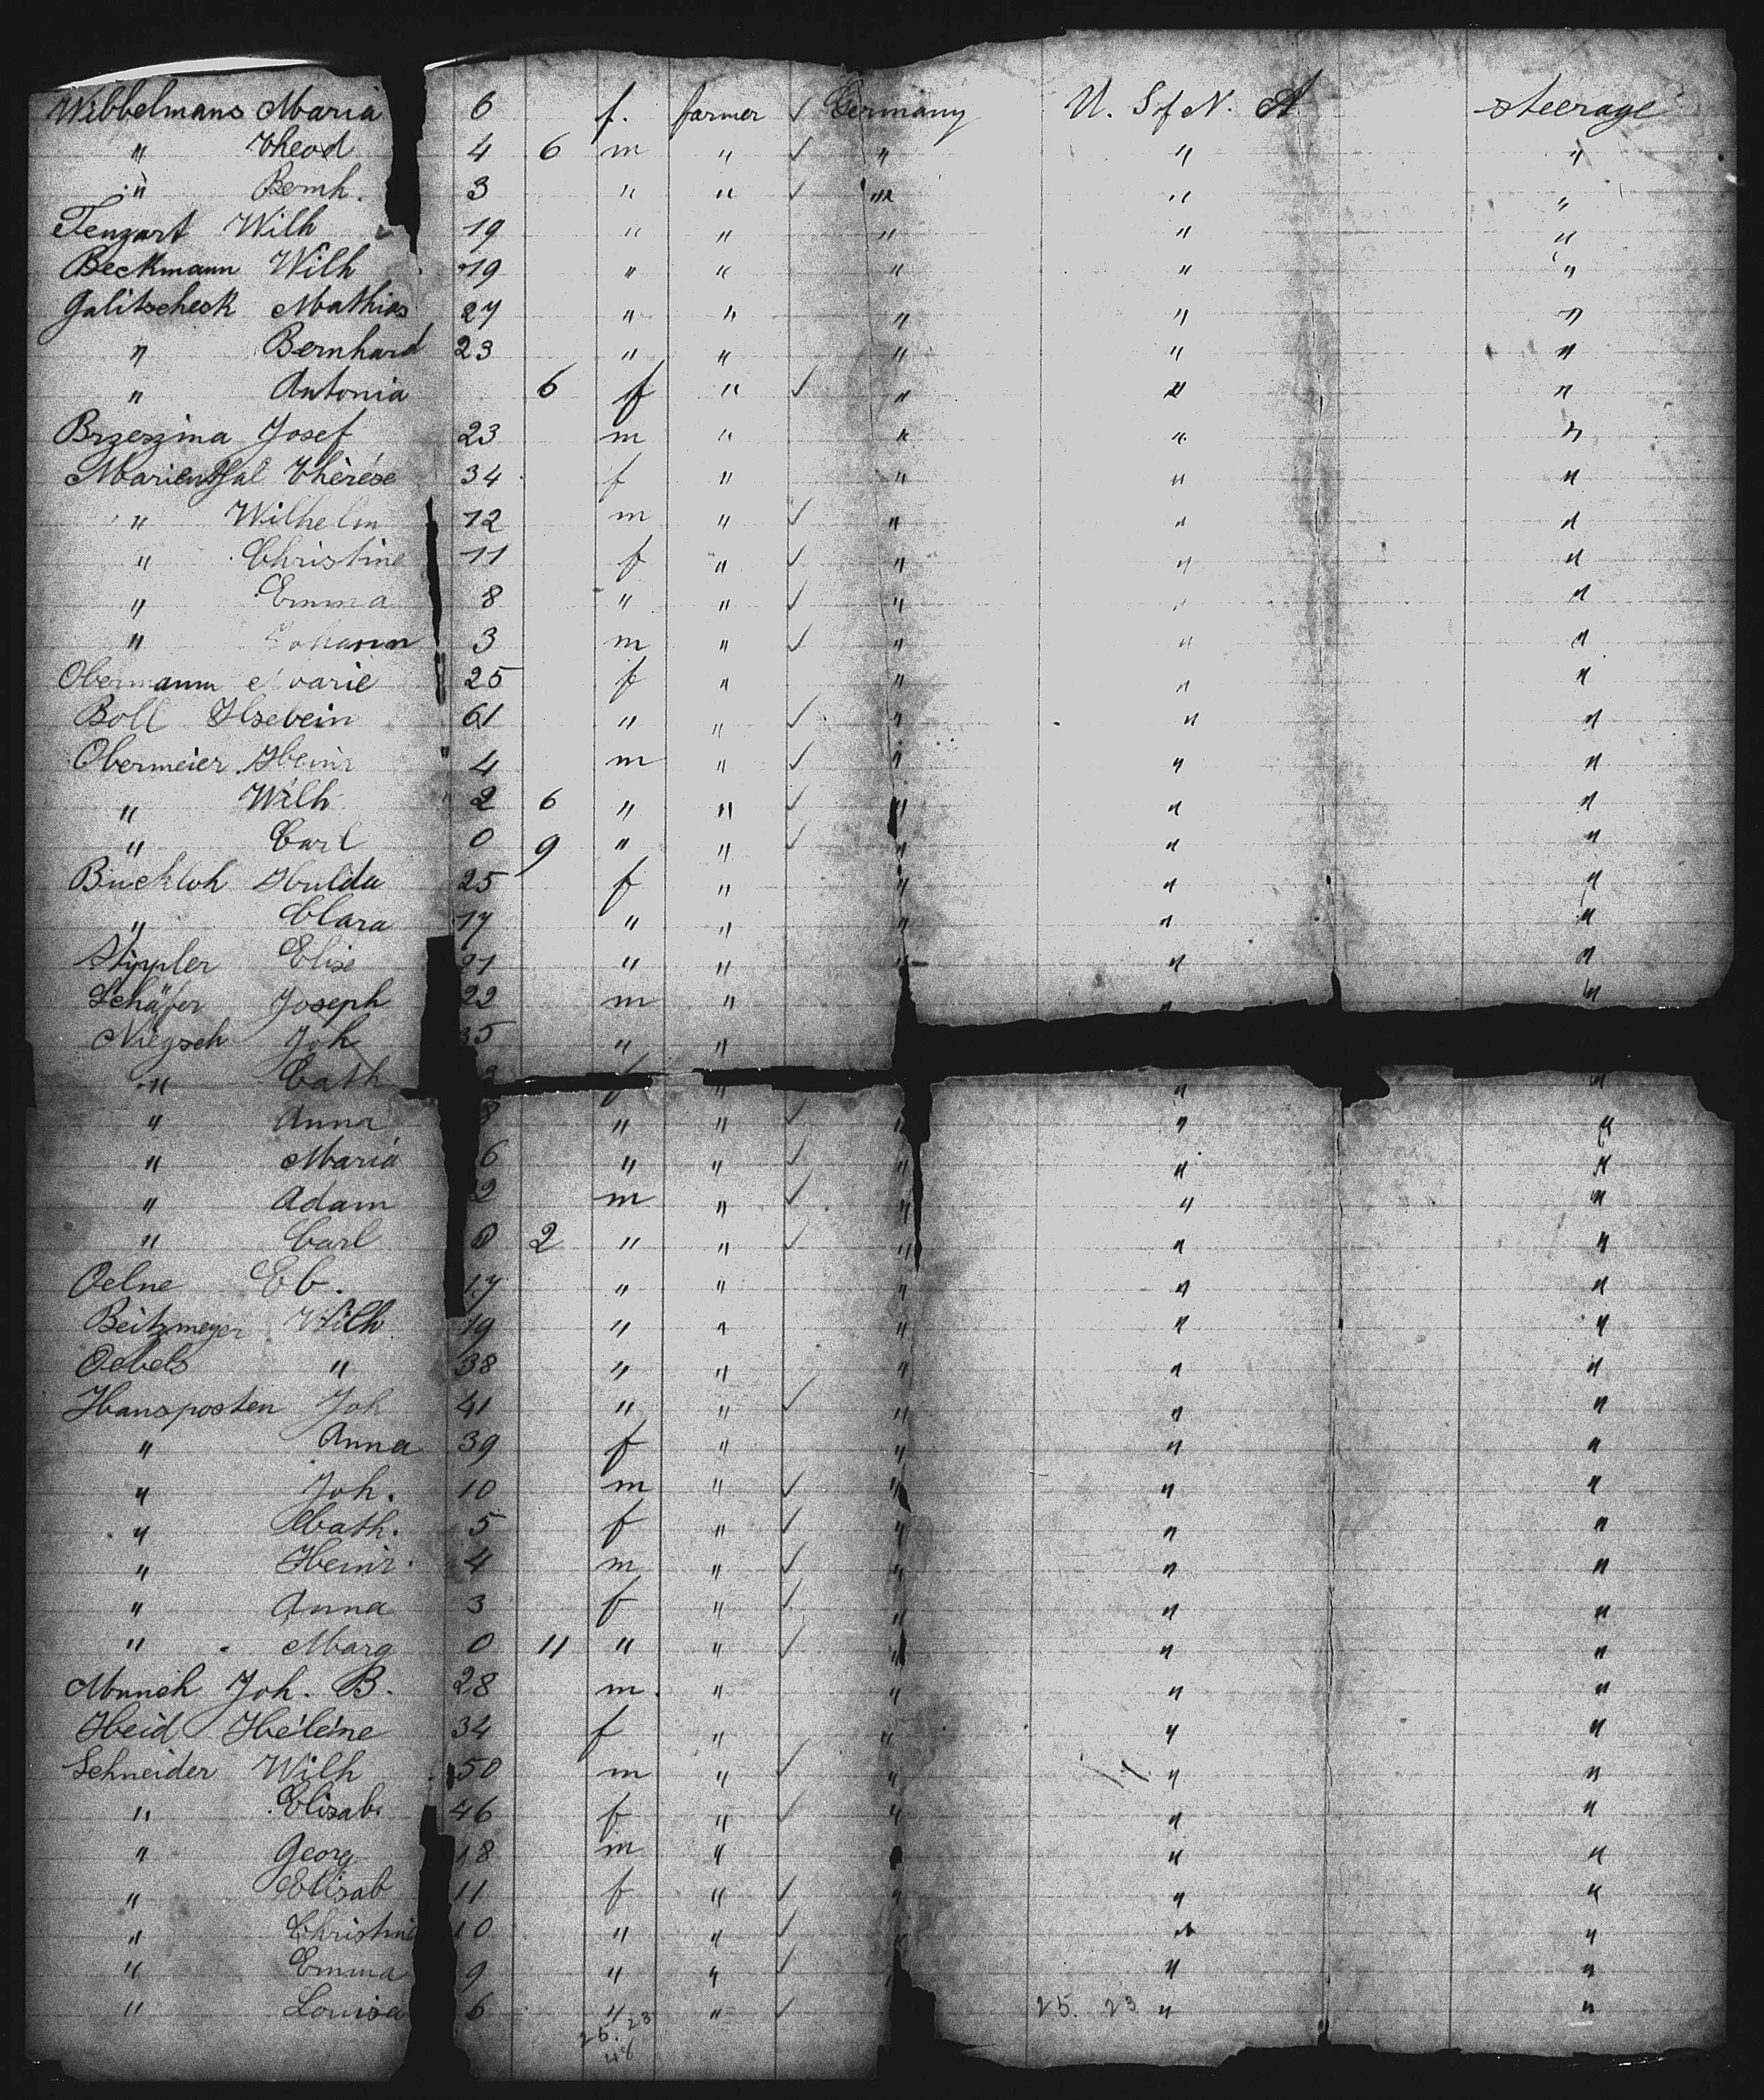 Wibbelmans Maria 6 f. farmer ✓ Germany U. S of N. A. steerage
" Theod 4 6 m " ✓ " " "
" Bernh. 3 " " ✓ " " "
Tenzart Wilh 19 " " " " "
Beckmann Wilh 19 " " " " "
Galitscheck Mathias 27 " " " " "
" Bernhard 23 " " " " "
" Antonia 6 f " ✓ " " "
Brzeszina Josef 23 m " " " "
Marienthal Thérése 34 f " " " "
" Wilhelm 12 m " ✓ " " "
" Christine 11 f " ✓ " " "
" Emma 8 " " ✓ " " "
" Johann 3 m " ✓ " " "
Obermann Marie 25 f " " " "
Boll Ilsebein 61 " " ✓ " " "
Obermeier Heinr 4 m " ✓ " " "
" Wilh 2 6 " " ✓ " " "
" Carl 0 9 " " ✓ " " "
Buckloh Hulda 25 f " " " "
" Clara 17 " " " " "
Stippler Elise 21 " " " " "
Schäfer Joseph 22 m " " "
Niegsch Joh 35 " "
" Cath f " " "
" Anna 8 " " ✓ " " "
" Maria 6 " " ✓ " " "
" Adam 2 m " ✓ " " "
" Carl 0 2 " " ✓ " " "
Oelne Eb. 17 " " " " "
Beitzmeyer Wilh 19 " " " " "
Oebels " 38 " " " " "
Hansposten Joh 41 " " ✓ " " "
" Anna 39 f " " " "
" Joh. 10 m " ✓ " " "
" Cath. 5 f " ✓ " " "
" Heinr. 4 m " ✓ " " "
" Anna 3 f " ✓ " " "
" Marg 0 11 " " ✓ " " "
Munch Joh. B. 28 m. " " " "
Heid Héléne 34 f " " " "
Schneider Wilh 50 m " ✓ " " "
" Elisab. 46 f " ✓ " " "
" Georg 18 m " " " "
" Elisab 11 f " ✓ " " "
" Christine 10 " " ✓ " " "
" Emma 9 " " ✓ " "
" Louisa 6 " " ✓ 25. 23 " "
25. 23
48